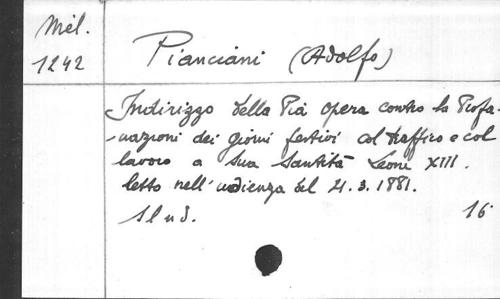 Mél.
1242
Pianciani (Adolfo)
Indirizzo della Pia Opera contro la Profa-
-nazioni dei giorni festivi col traffico e col
lavoro a Sua Santità Leone XIII.
letto nell'udienza del 21.3.1881.
S l n d. 16